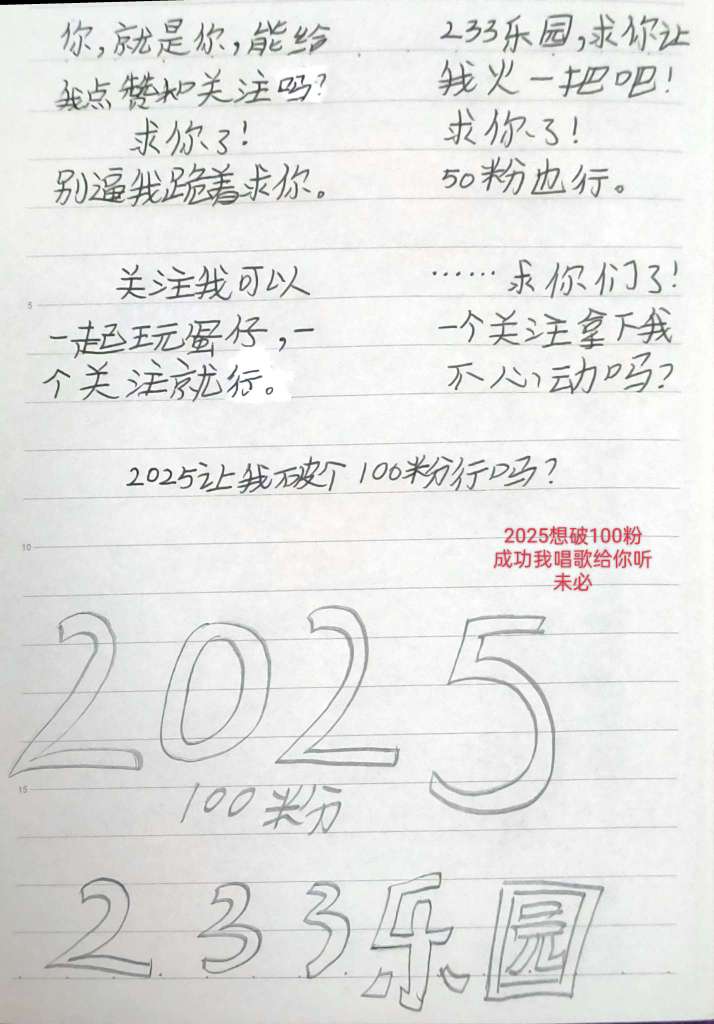 你，就是你，能给
我点赞和关注吗？
求你了！
别逼我跪着求你。
233乐园，求你让
我火一把吧！
求你了！
50粉也行。
关注我可以
一起玩蛋仔，一
个关注就行。
……求你们了！
一个关注拿下我
不心动吗？
2025让我破个100粉行吗？
2025想破100粉
成功我唱歌给你听
未必
2025
100粉
233乐园
5
10
15